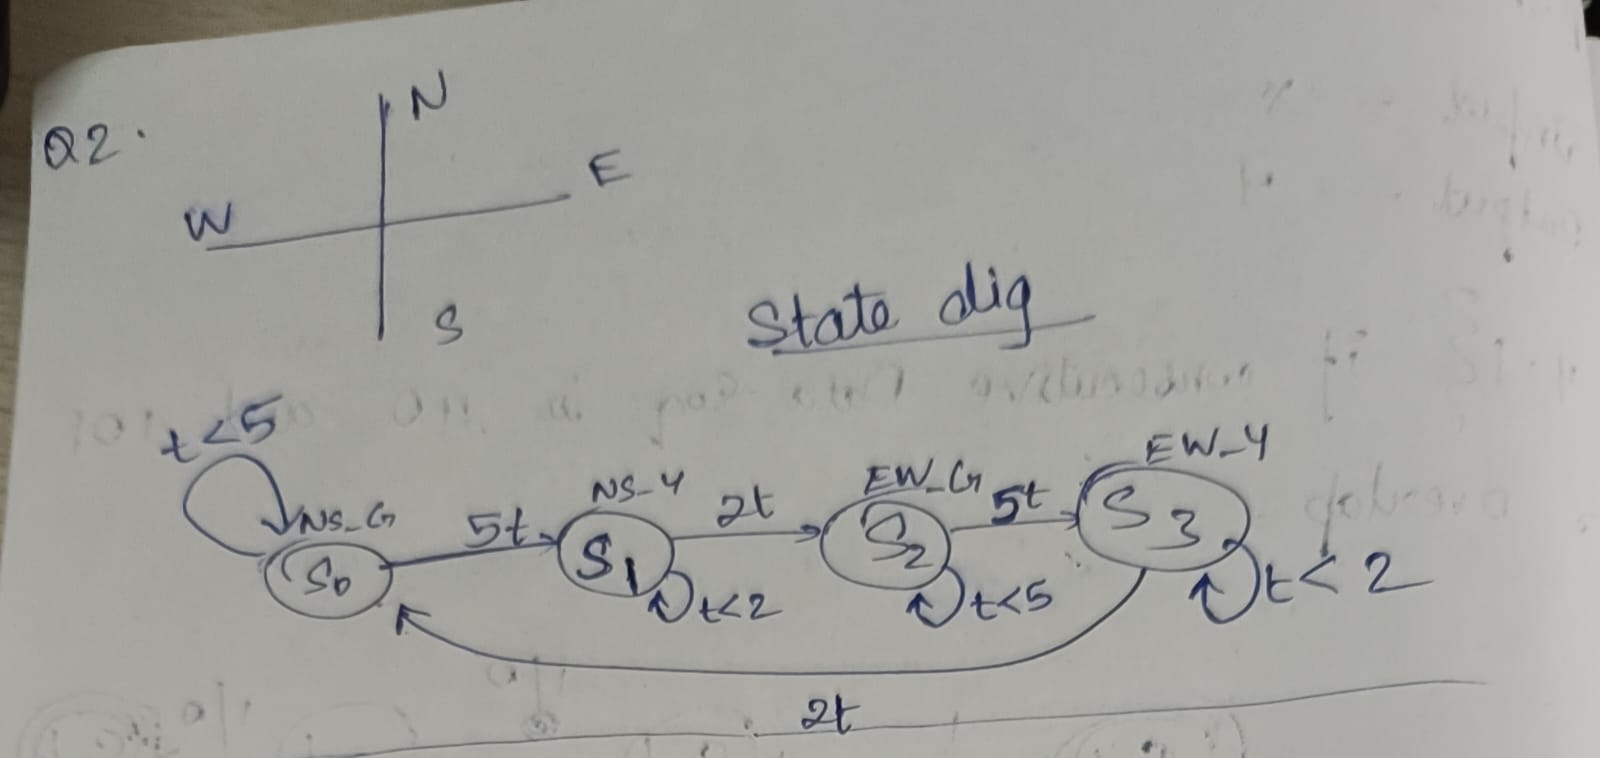 Q2.
N
E
W
S
State dig
t<5
NS_G
S0
5t
NS_Y
S1
t<2
2t
EW_G
S2
t<5
5t
EW_Y
S3
t<2
2t